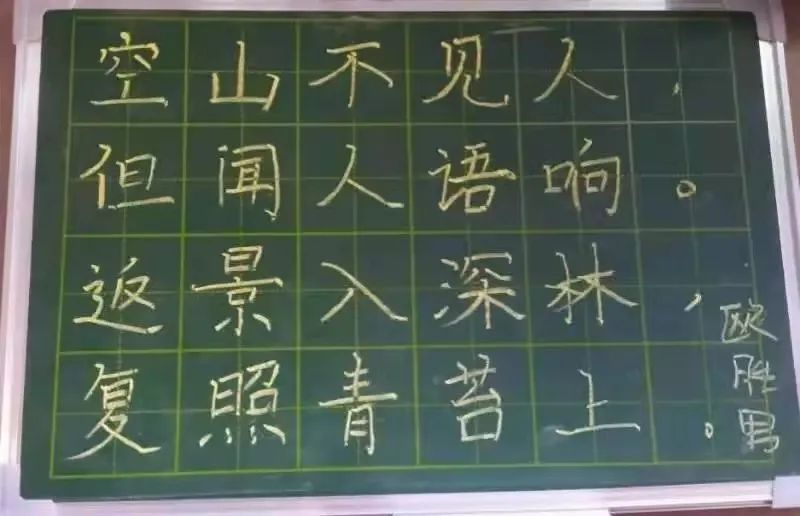 空山不见人，
但闻人语响。
返景入深林，
复照青苔上。
欧胜男